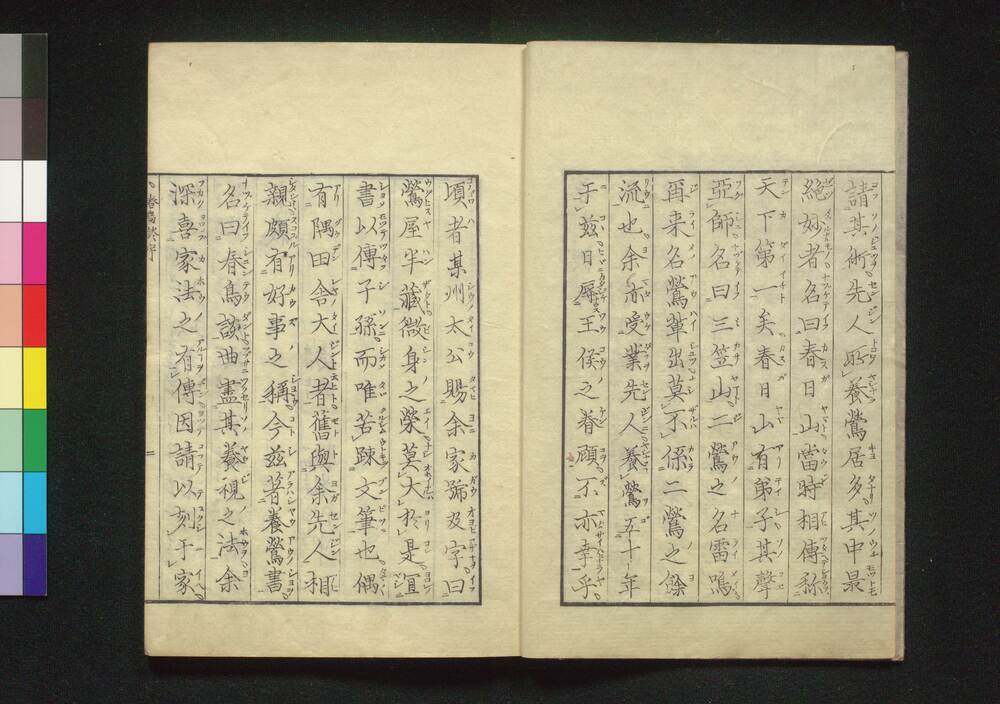 請其術先人所養鶯居多其中最
絶妙者名曰春日山當時相傳称
天下第一矣春日山有弟子其聲
亞師名曰三笠山二鶯之名雷鳴
爾来名鶯輩出莫不係二鶯之餘
流也余亦受業先人養鶯五十年
于茲日辱王侯之眷顧不亦幸乎
頃者某州太公賜余家號及字曰
鶯屋半藏微身之榮莫大於是宜
書以傳子孫而唯苦踈文筆也偶
有隅田舎大人者舊與余先人相
親頗有好事之稱今茲著養鶯書
名曰春鳥談曲盡其養視之法余
深喜家法之有傳因請以刻于家